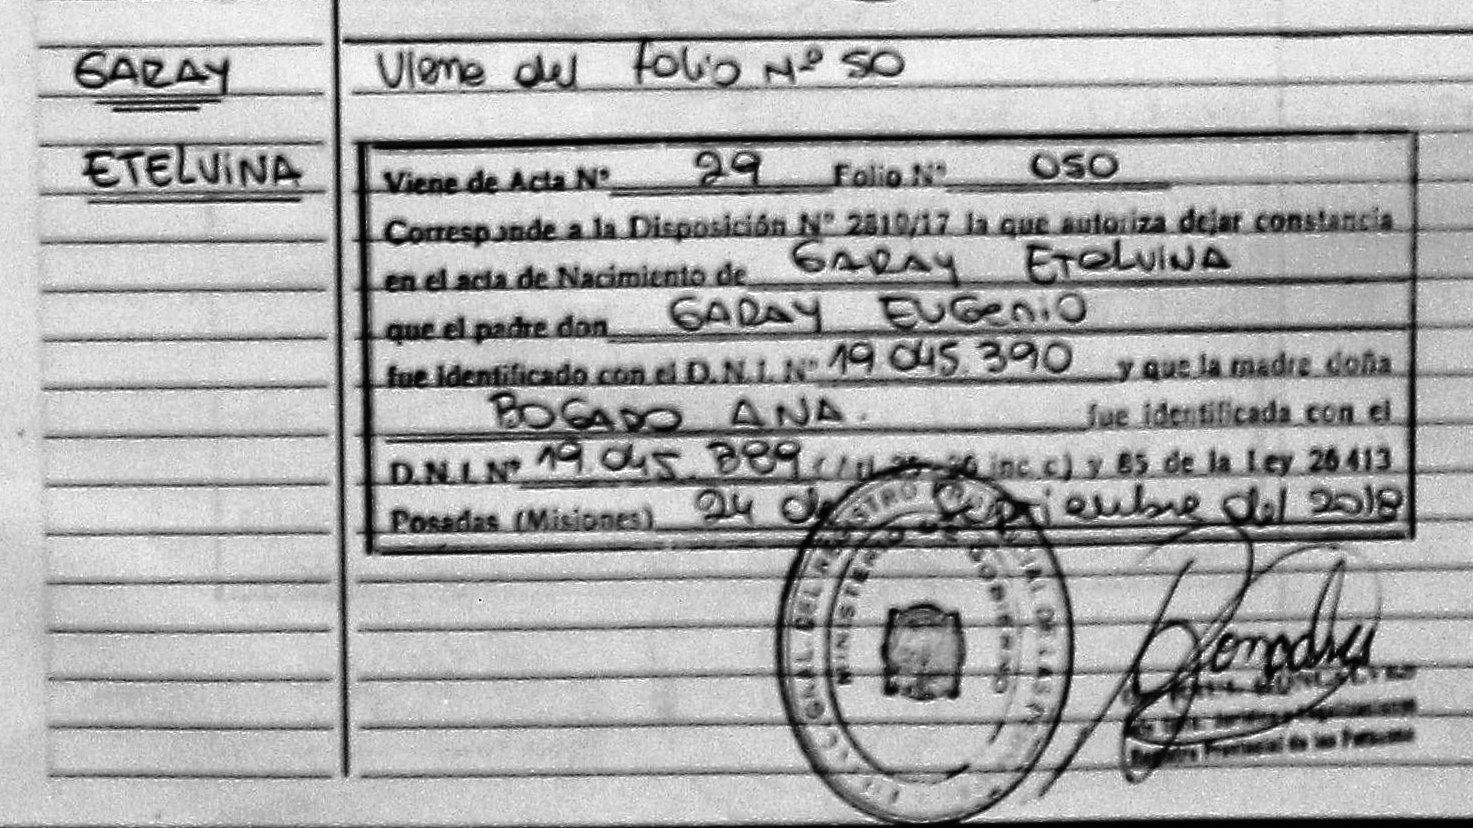 GARAY
Viene del folio Nº 50
ETELVINA
Viene de Acta Nº 29 Folio Nº 050
Corresponde a la Disposición Nº 2810/17 la que autoriza dejar constancia
en el acta de Nacimiento de GARAY ETELVINA
que el padre don GARAY EUGENIO
fue identificado con el D.N.I. Nº 19.045.390 y que la madre doña
BOGADO ANA. fue identificada con el
D.N.I. Nº 19.045.389 inc. c) y 85 de la Ley 26 413
Posadas (Misiones) 24 de Septiembre del 2018
MINISTERIO DE GOBIERNO
Registro Provincial de las Personas